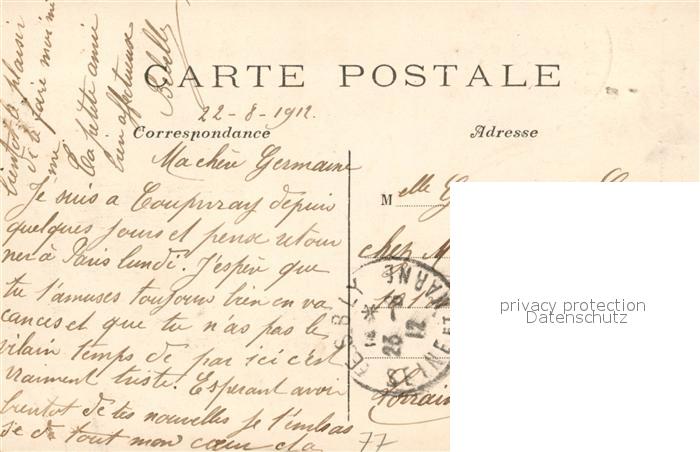 CARTE POSTALE
22-8-1912.
Correspondance
Adresse
Ma chère Germaine
Je suis a Coupvray depuis
quelques jours et pense retour
ner à Paris lundi. J'espère que
tu t'amuses toujours bien en va
cances et que tu n'as pas le
vilain temps de par ici c'est
vraiment triste. Esperant avoir
bientot de tes nouvelles je t'embras
se de tout mon cœur et a
bientot le plaisir
de te faire moi mê
me
Ta petite amie
bien affectueuse
Melle G
chez M
Lorrain
ESBLY
23 - 8
12
SEINE ET MARNE
77
privacy protection
Datenschutz